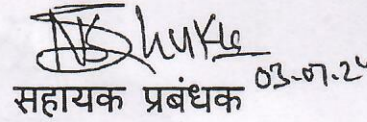 NShukla
सहायक प्रबंधक 03-07-2